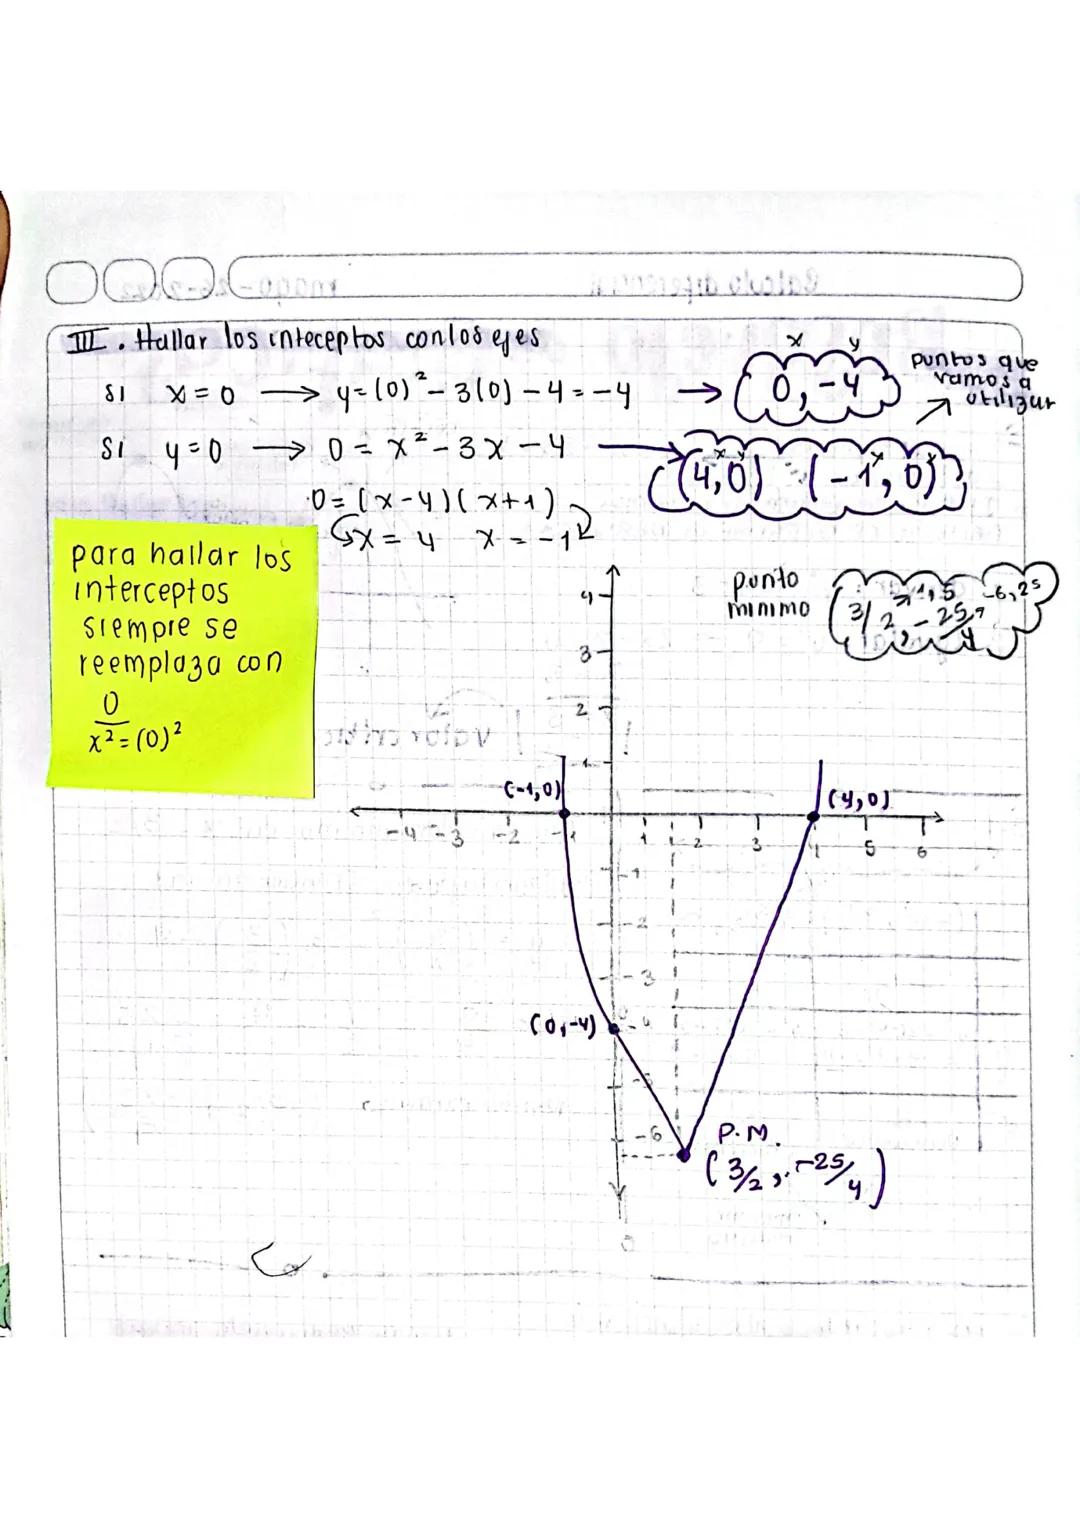 III. Hallar los inteceptos con los ejes
x y
SI x = 0 → y = (0)² - 3(0) - 4 = -4 → 0, -4
puntos que vamos a utilizar
SI y = 0 → 0 = x² - 3x - 4 → (4,0) (-1,0)
x y x y
0 = (x-4)(x+1)
x = 4 x = -1
para hallar los
interceptos
siempre se
reemplaza con
0
x² = (0)²
punto
minimo
3/2, -25/4
1,5 -6,25
4
3
2
1
(-1,0)
(4,0)
-4 -3 -2 -1 1 2 3 4 5 6
-1
-2
-3
(0,-4)
-4
-5
-6
P.M.
(3/2, -25/4)